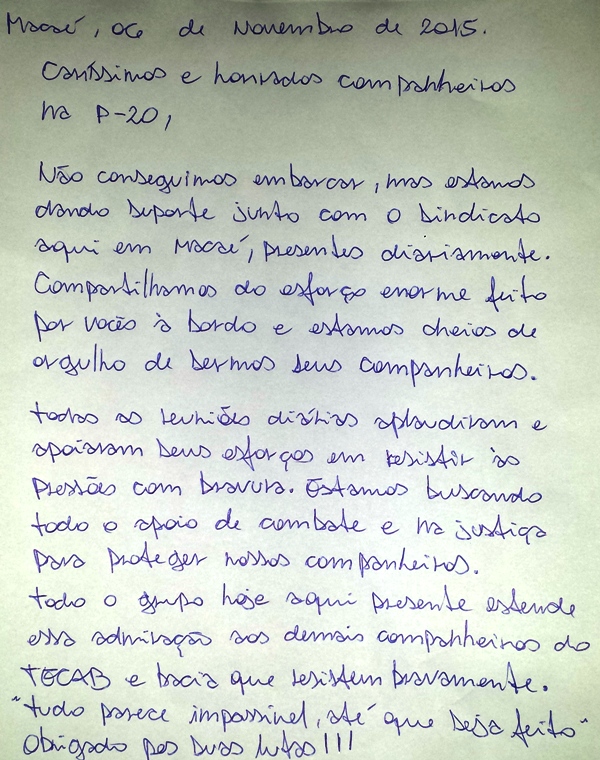 Macaé, 06 de Novembro de 2015.
Caríssimos e honrados companheiros
na P-20,
Não conseguimos embarcar, mas estamos
dando suporte junto com o sindicato
aqui em Macaé, presentes diariamente.
Compartilhamos do esforço enorme feito
por vocês à bordo e estamos cheios de
orgulho de sermos seus companheiros.
todas as reuniões diárias aplaudiram e
apoiaram seus esforços em resistir às
pressões com bravura. Estamos buscando
todo o apoio de combate e na justiça
para proteger nossos companheiros.
todo o grupo hoje aqui presente estende
essa admiração aos demais companheiros do
TECAB e bacia que resistem bravamente.
"tudo parece impossível, até que seja feito"
Obrigado por suas lutas!!!